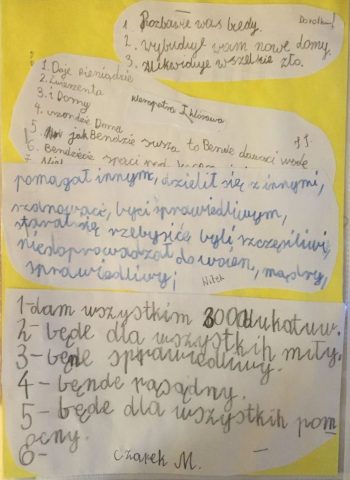 1. Pozbawie was biedy. Dorotka
2. wybuduje wam nowe domy.
3. zlikwiduje wszelkie zło.
1. Daje pieniądzie
2. zwierzenta
3. i Domy
Kleopatra I
4. Doma
5. jak Bendzie susza to Bende dawać wode
6. Bendziecie spać
7.
pomagał innym, dzielił się z innymi,
szanować, być sprawiedliwym,
starał się rzebyście byli szczęśliwi,
niedoprowadzał do wojen, mądry,
sprawiedliwy; Witek
1-dam wszystkim 300 dukatuw.
2-będe dla wszystkich miły.
3-będe sprawiedliwy.
4-będe rąsądny.
5-będe dla wszystkih pom
ocny.
6-
Czarek M.